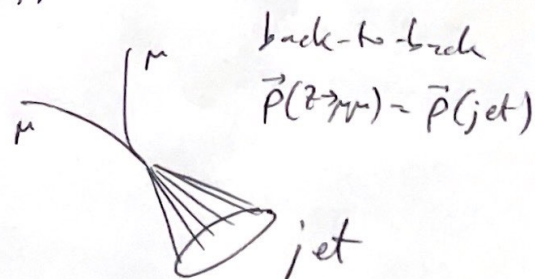 back-to-back
p⃗(Z→μμ) = p⃗(jet)
μ
μ
jet